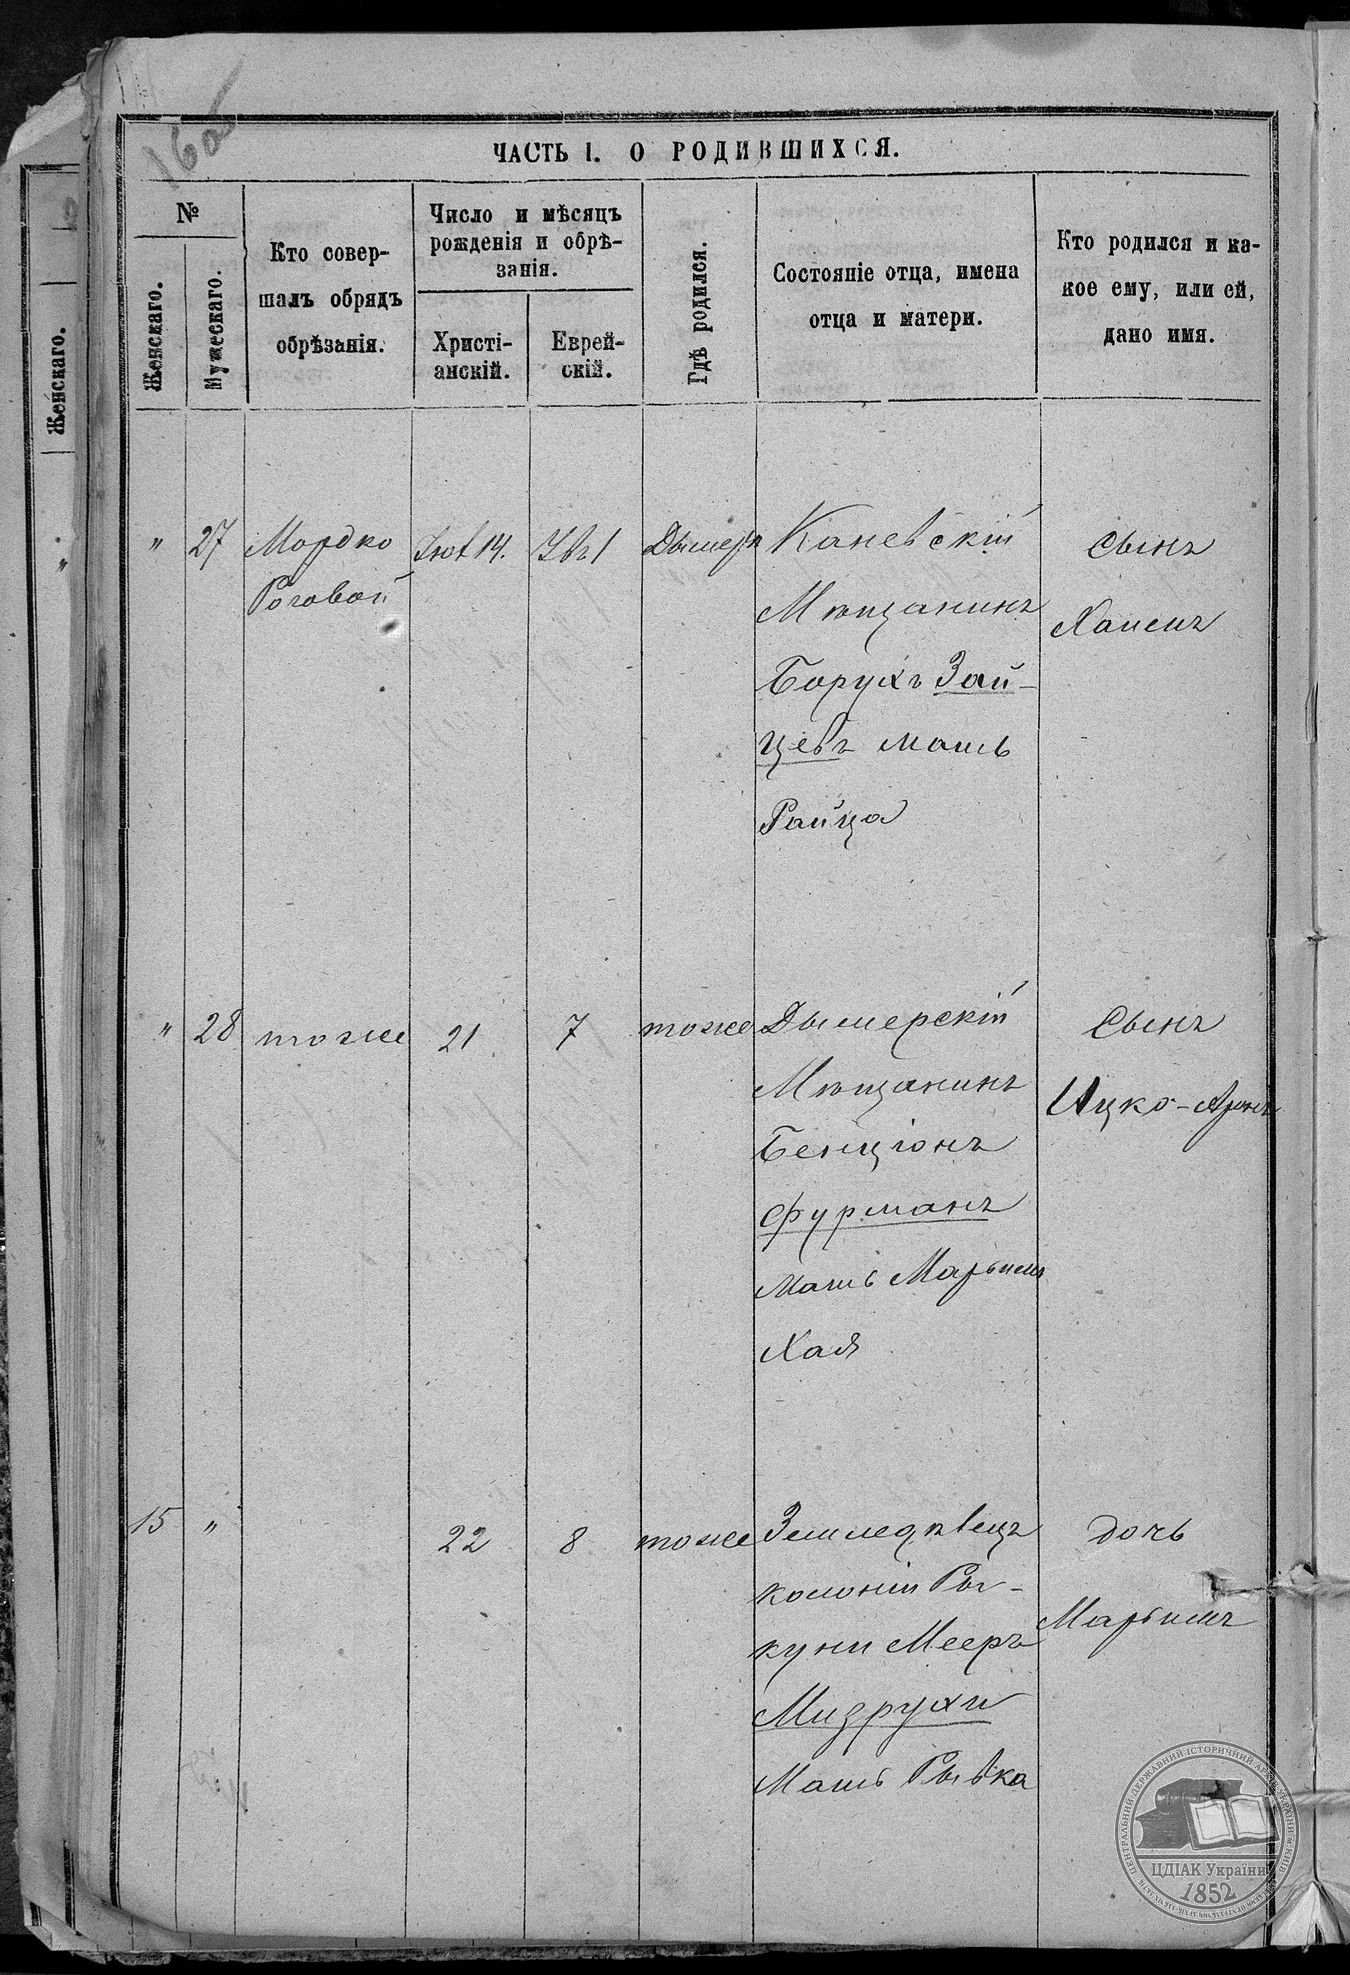 16об
ЧАСТЬ I. О РОДИВШИХСЯ.
№
Женскаго.
Мужескаго.
Кто совер-
шалъ обрядъ
обрѣзанія.
Число и мѣсяцъ
рожденія и обрѣ-
занія.
Христі-
анскій.
Еврей-
скій.
Гдѣ родился.
Состояніе отца, имена
отца и матери.
Кто родился и ка-
кое ему, или ей,
дано имя.
Женскаго.
"
" 27 Мордко
Роговой
14. 1
Дымеръ
Каневскій
Мѣщанинъ
Борухъ Зай-
цевъ мать
Райца
сынъ
Хаимъ
" 28 тоже 21 7 тоже
Дымерскій
Мѣщанинъ
Бенціонъ
Фурманъ
мать Марьимъ
Хая
Сынъ
Ицко-Аронъ
15 " 22 8 тоже
Земледѣлецъ
колоніи Ры-
куни Мееръ
Мидрухи
Мать Рывка
дочь
Марьимъ
ЦЕНТРАЛЬНИЙ ДЕРЖАВНИЙ ІСТОРИЧНИЙ АРХІВ УКРАЇНИ, м. КИЇВ
ЦДІАК України
1852